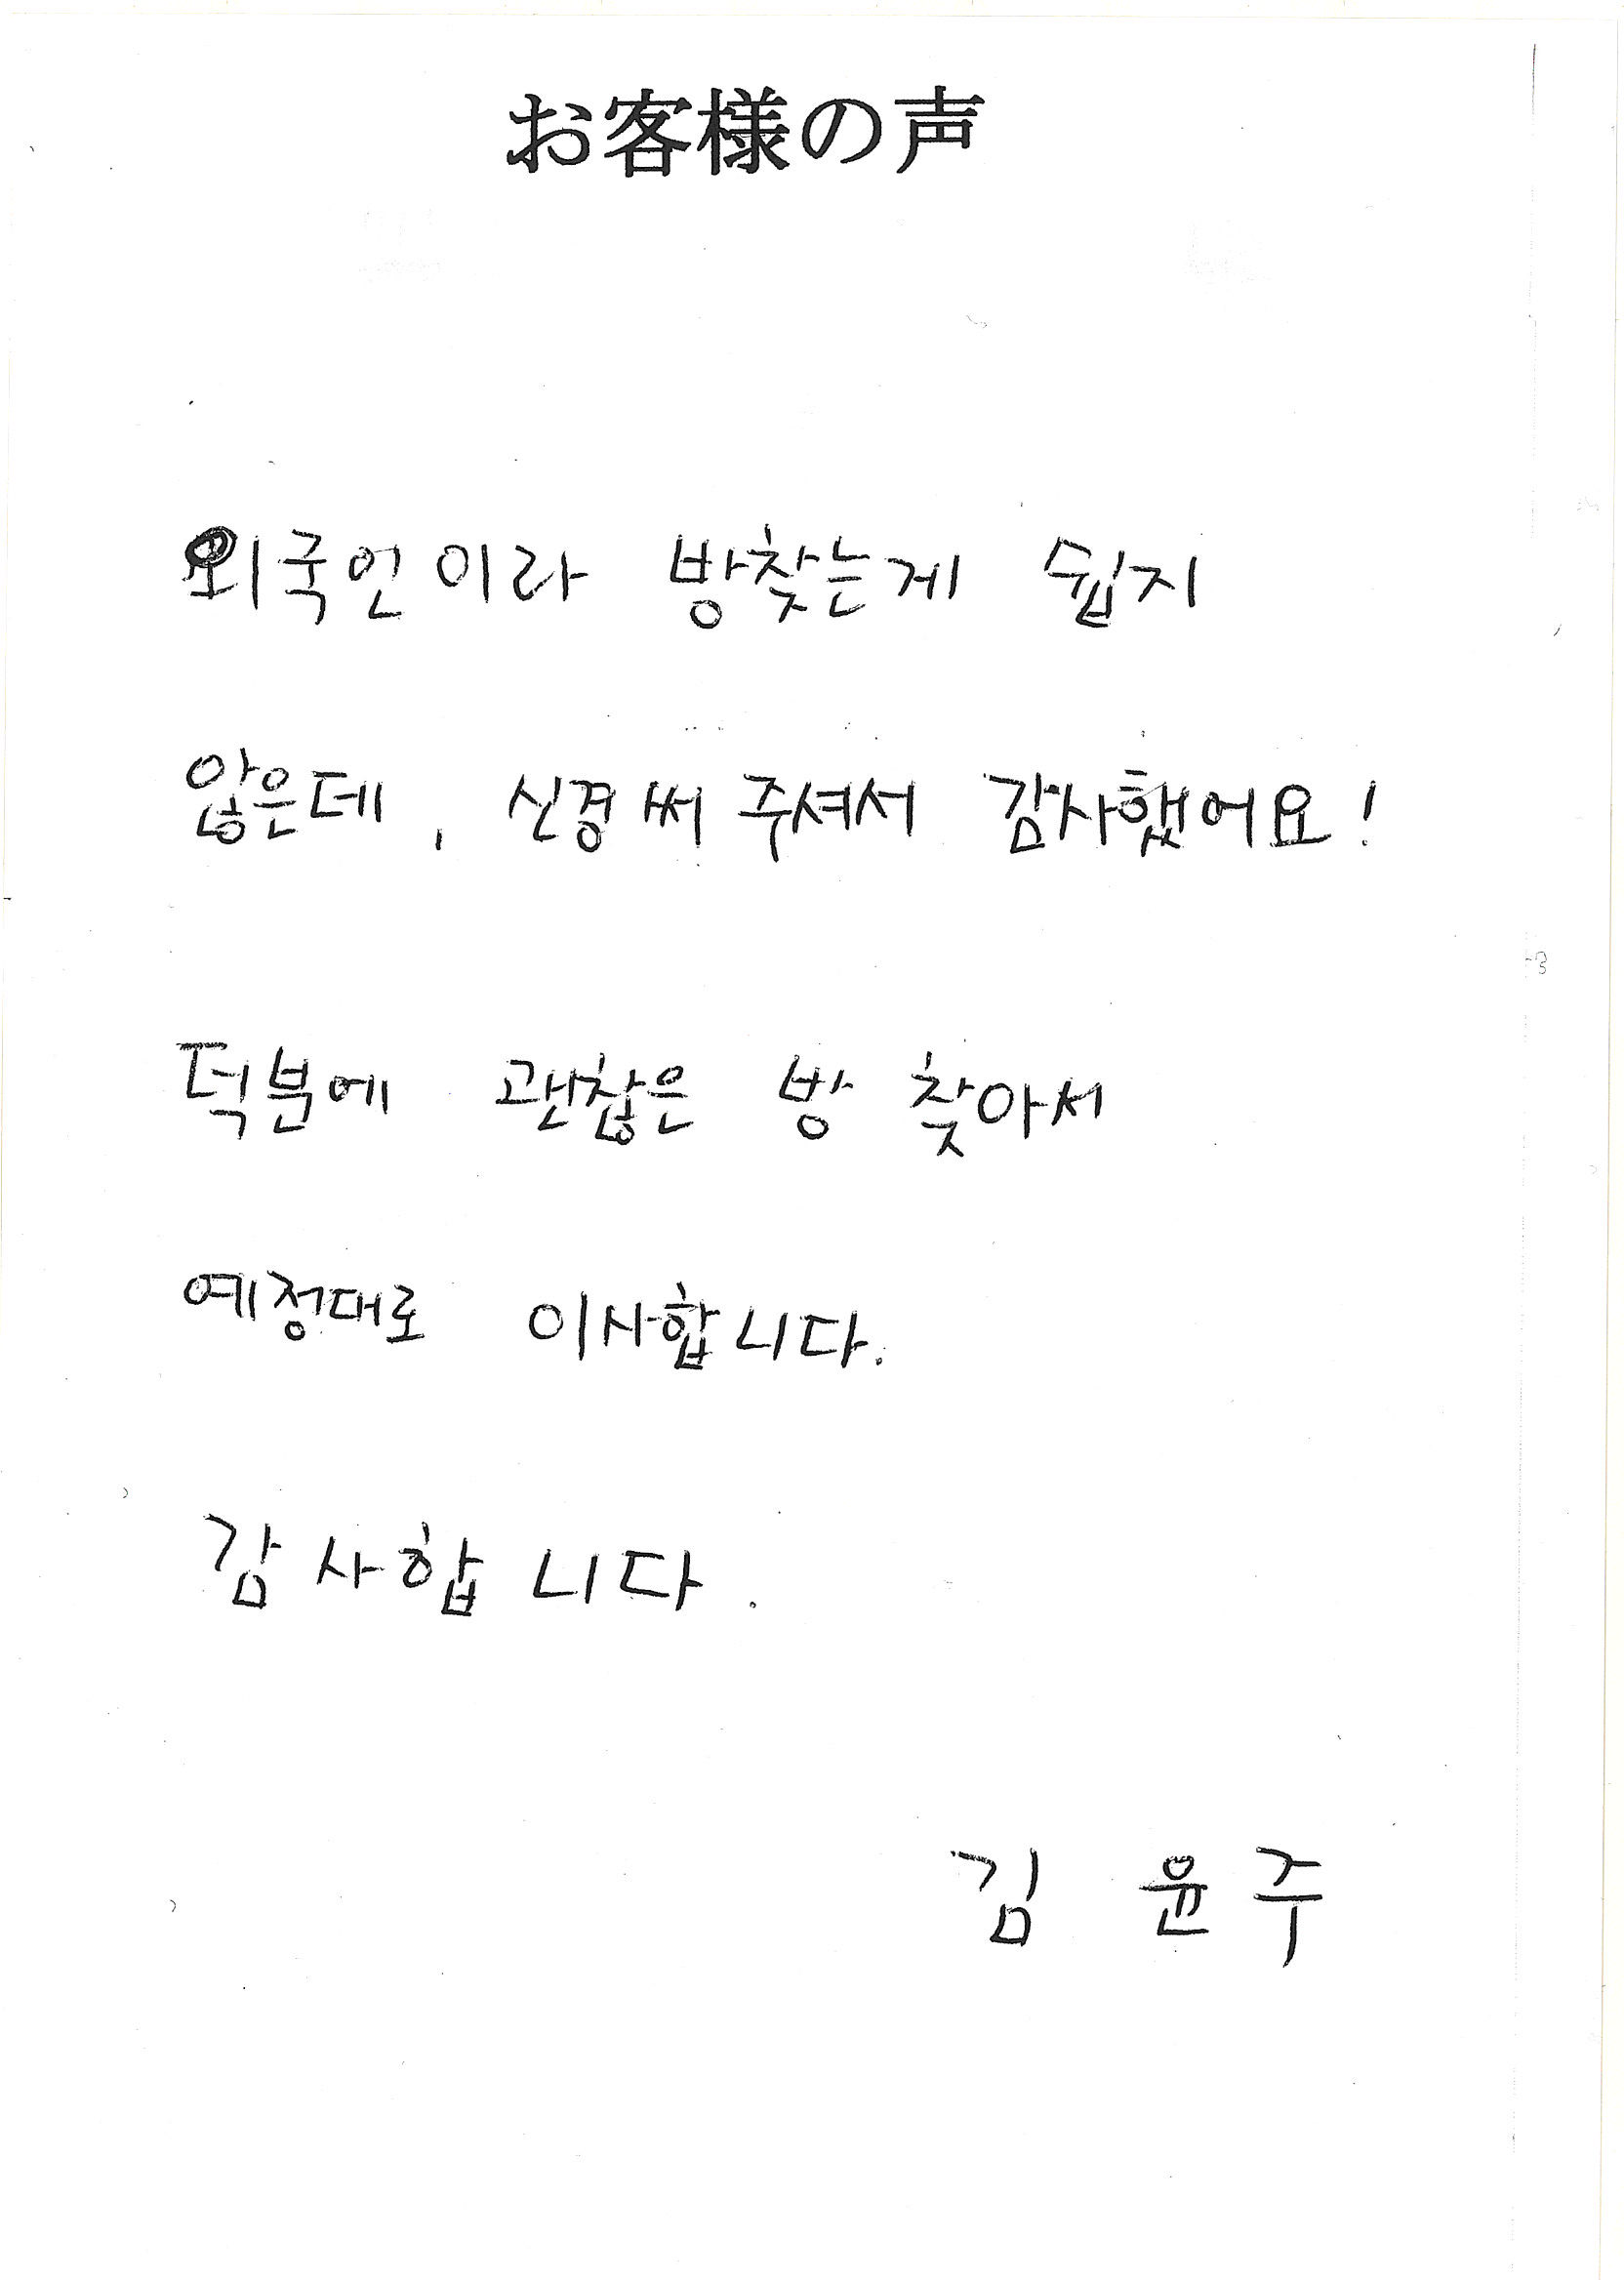 お客様の声
외국인이라 방찾는게 쉽지
않은데, 신경써 주셔서 감사했어요!
덕분에 괜찮은 방 찾아서
예정대로 이사합니다.
감사합니다.
김 윤주